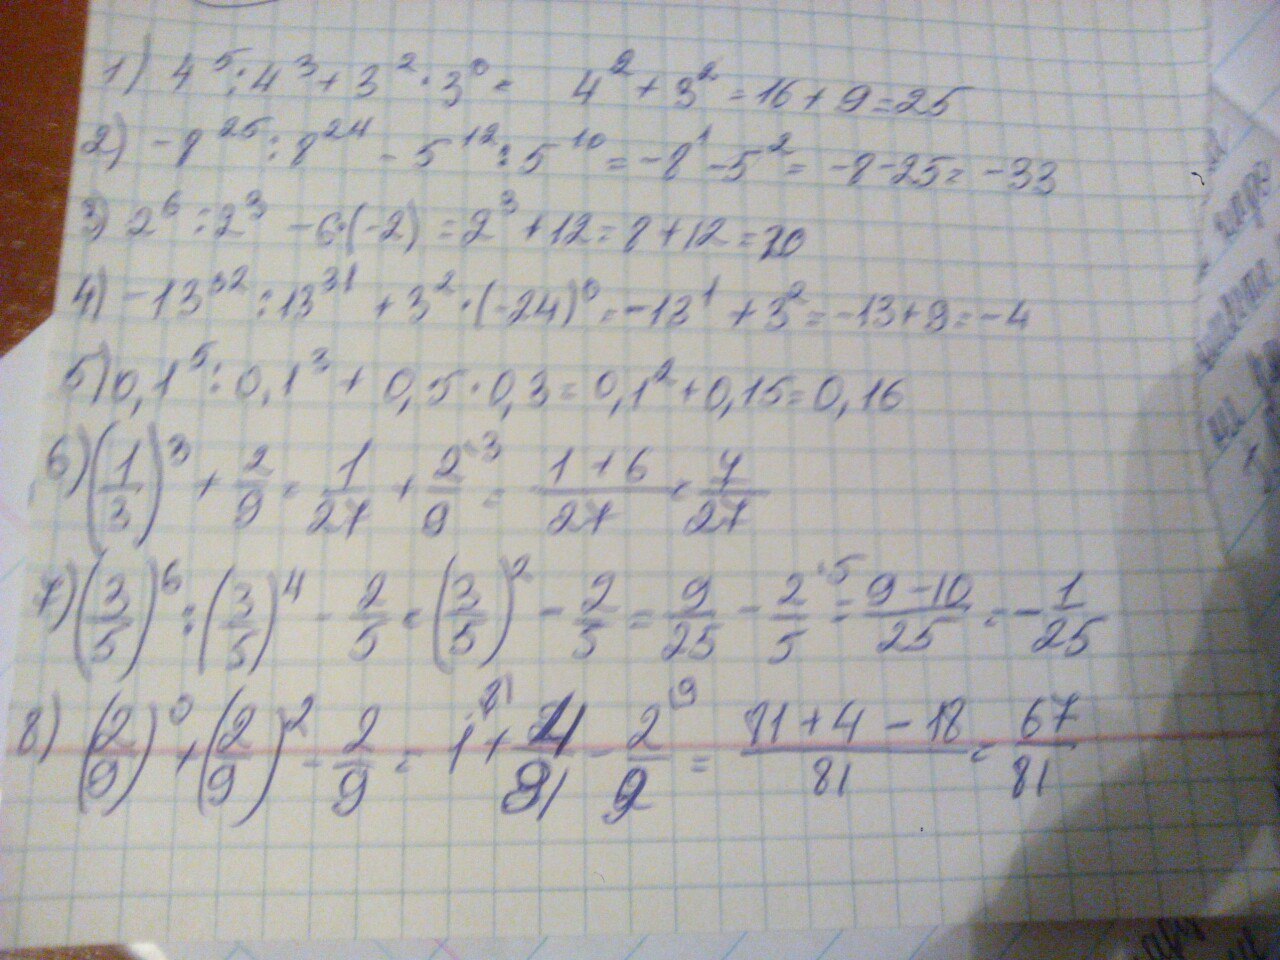 1) 4⁵:4³+3²·3⁰= 4²+3²=16+9=25
2) -8²⁵:8²⁴-5¹²:5¹⁰=-8¹-5²=-8-25=-33
3) 2⁶:2³-6·(-2)=2³+12=8+12=20
4) -13³²:13³¹+3²·(-24)⁰=-13¹+3²=-13+9=-4
5) 0,1⁵:0,1³+0,5·0,3=0,1²+0,15=0,16
6) (1/3)³+2/9=1/27+2/9 ·3=(1+6)/27=7/27
7) (3/5)⁶:(3/5)⁴-2/5=(3/5)²-2/5=9/25-2/5 ·5=(9-10)/25=-1/25
8) (2/9)⁰+(2/9)²-2/9=1 ·81+4/81-2/9 ·9=(81+4-18)/81=67/81